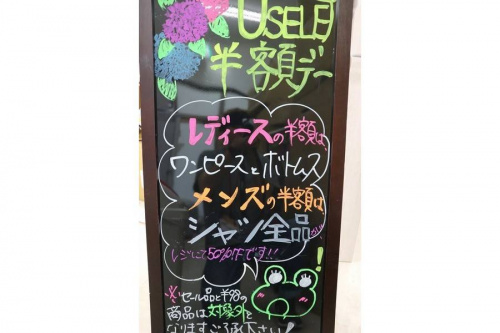 USELET
半額デー
レディースの半額は、
ワンピースとボトムス
メンズの半額は
シャツ全品
レジにて50%OFFです!!
※セール品と¥98の
商品は対象外と
なりますご了承下さい!